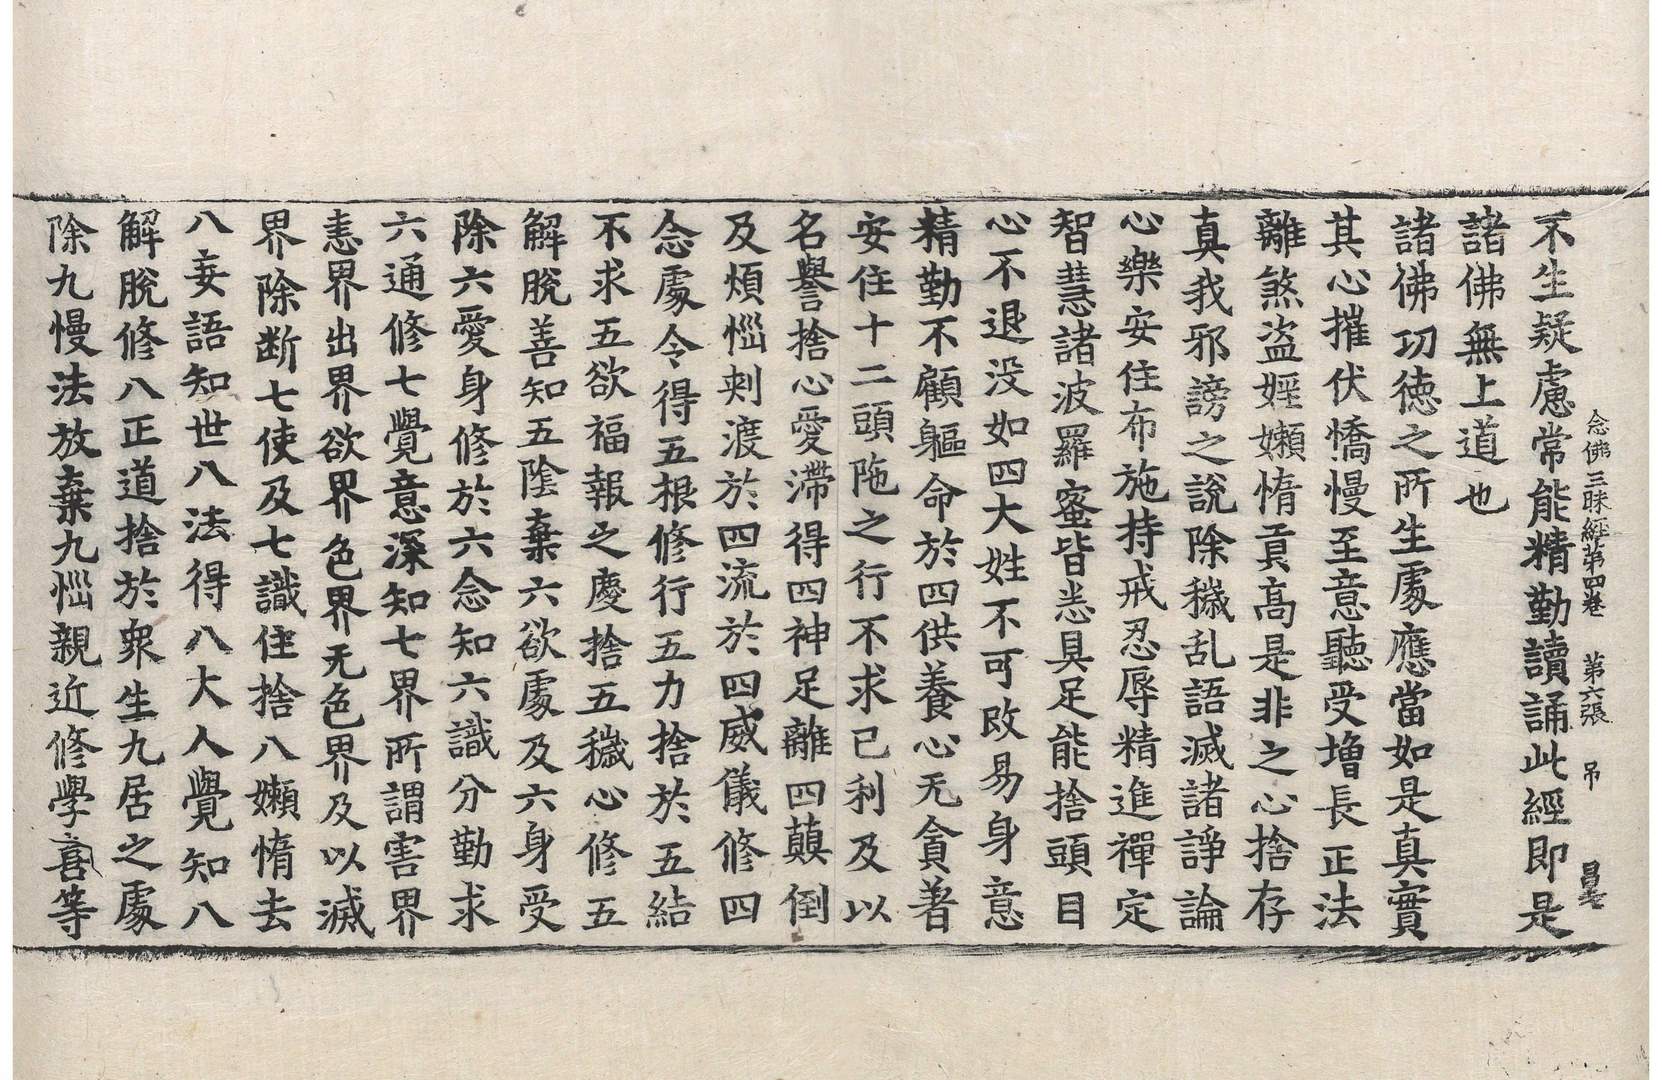 不生疑慮常能精勤讀誦此經即是
念佛三昧經第四卷 第六張 吊 昌
諸佛無上道也
諸佛功德之所生處應當如是真實
其心摧伏憍慢至意聽受增長正法
離煞盜婬嬾惰貢高是非之心捨存
真我邪謗之說除穢乱語滅諸諍論
心樂安住布施持戒忍辱精進禪定
智慧諸波羅蜜皆悉具足能捨頭目
心不退没如四大姓不可改易身意
精勤不顧軀命於四供養心无貪著
安住十二頭陁之行不求己利及以
名譽捨心愛滯得四神足離四蘈倒
及煩惱刾渡於四流於四威儀修四
念處令得五根修行五力捨於五結
不求五欲福報之慶捨五穢心修五
解脫善知五陰棄六欲處及六身受
除六愛身修於六念知六識分勤求
六通修七覺意深知七界所謂害界
恚界出界欲界色界无色界及以滅
界除断七使及七識住捨八嬾惰去
八妄語知世八法得八大人覺知八
解脫修八正道捨於衆生九居之處
除九慢法放棄九惱親近修學喜等